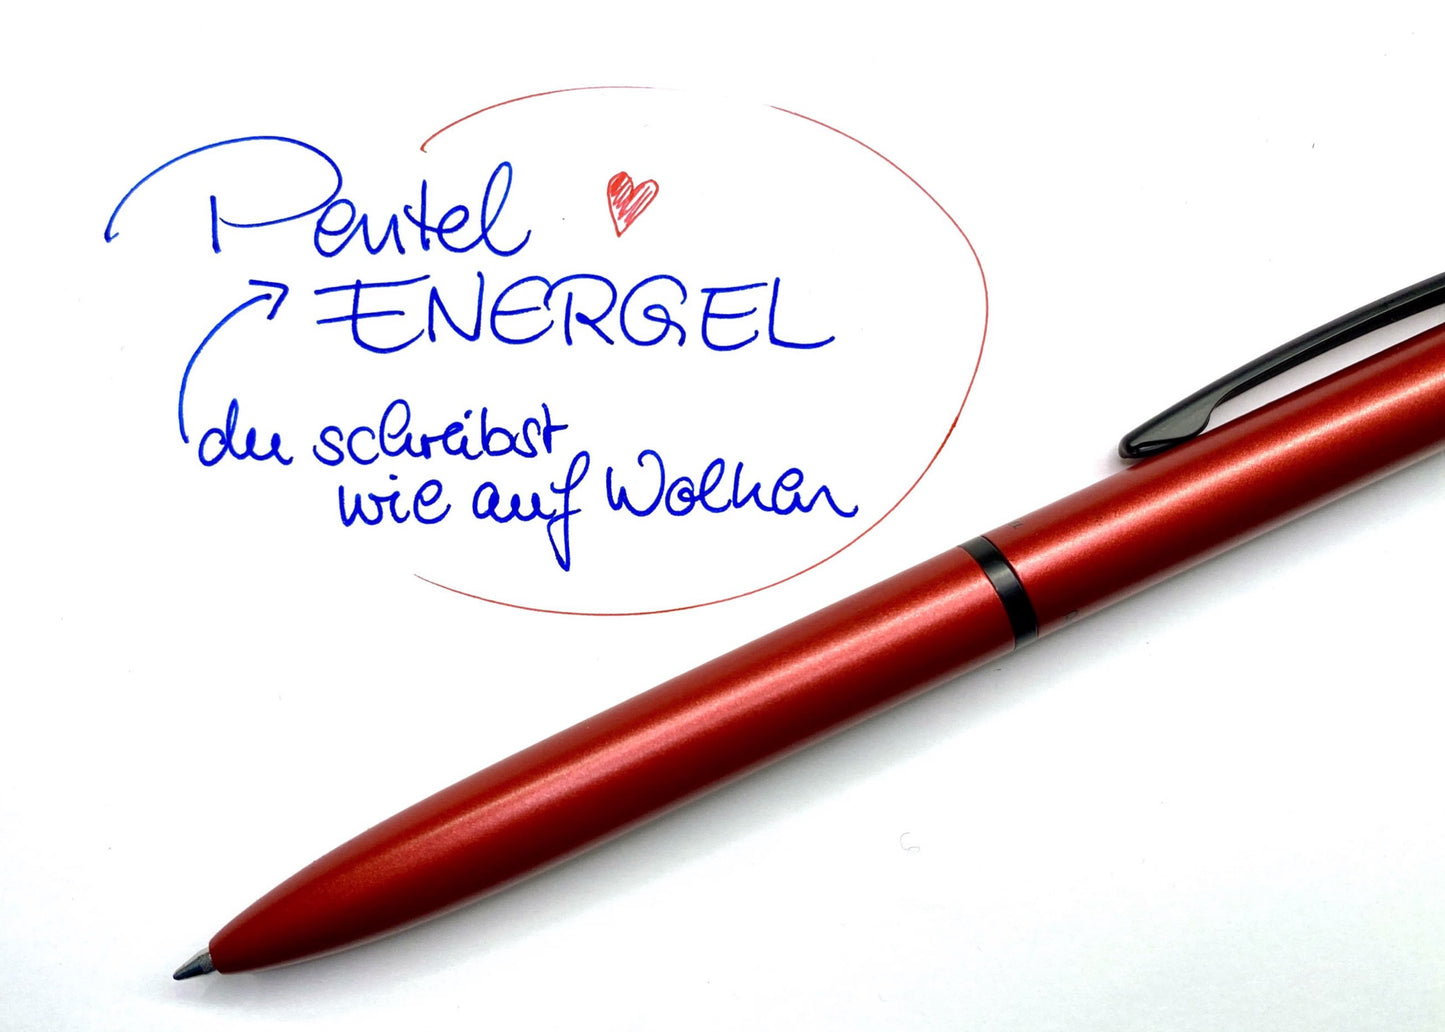 Pentel
ENERGEL
du schreibst
wie auf Wolken